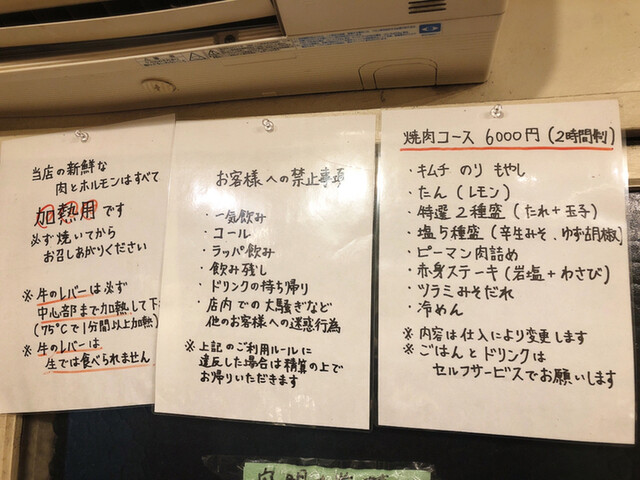 当店の新鮮な
肉とホルモンはすべて
加熱用です
必ず焼いてから
お召しあがりください
※牛のレバーは必ず
中心部まで加熱して下
(75℃で1分間以上加熱)
※牛のレバーは
生では食べられません
お客様への禁止事項
・一気飲み
・コール
・ラッパ飲み
・飲み残し
・ドリンクの持ち帰り
・店内での大騒ぎなど
他のお客様への迷惑行為
※上記のご利用ルールに
違反した場合は精算の上で
お帰りいただきます
焼肉コース 6000円(2時間制)
・キムチ のり もやし
・たん(レモン)
・特選2種盛(たれ+玉子)
・塩5種盛(辛生みそ、ゆず胡椒)
・ピーマン肉詰め
・赤身ステーキ(岩塩+わさび)
・ツラミみそだれ
・冷めん
※内容は仕入により変更します
※ごはんとドリンクは
セルフサービスでお願いします